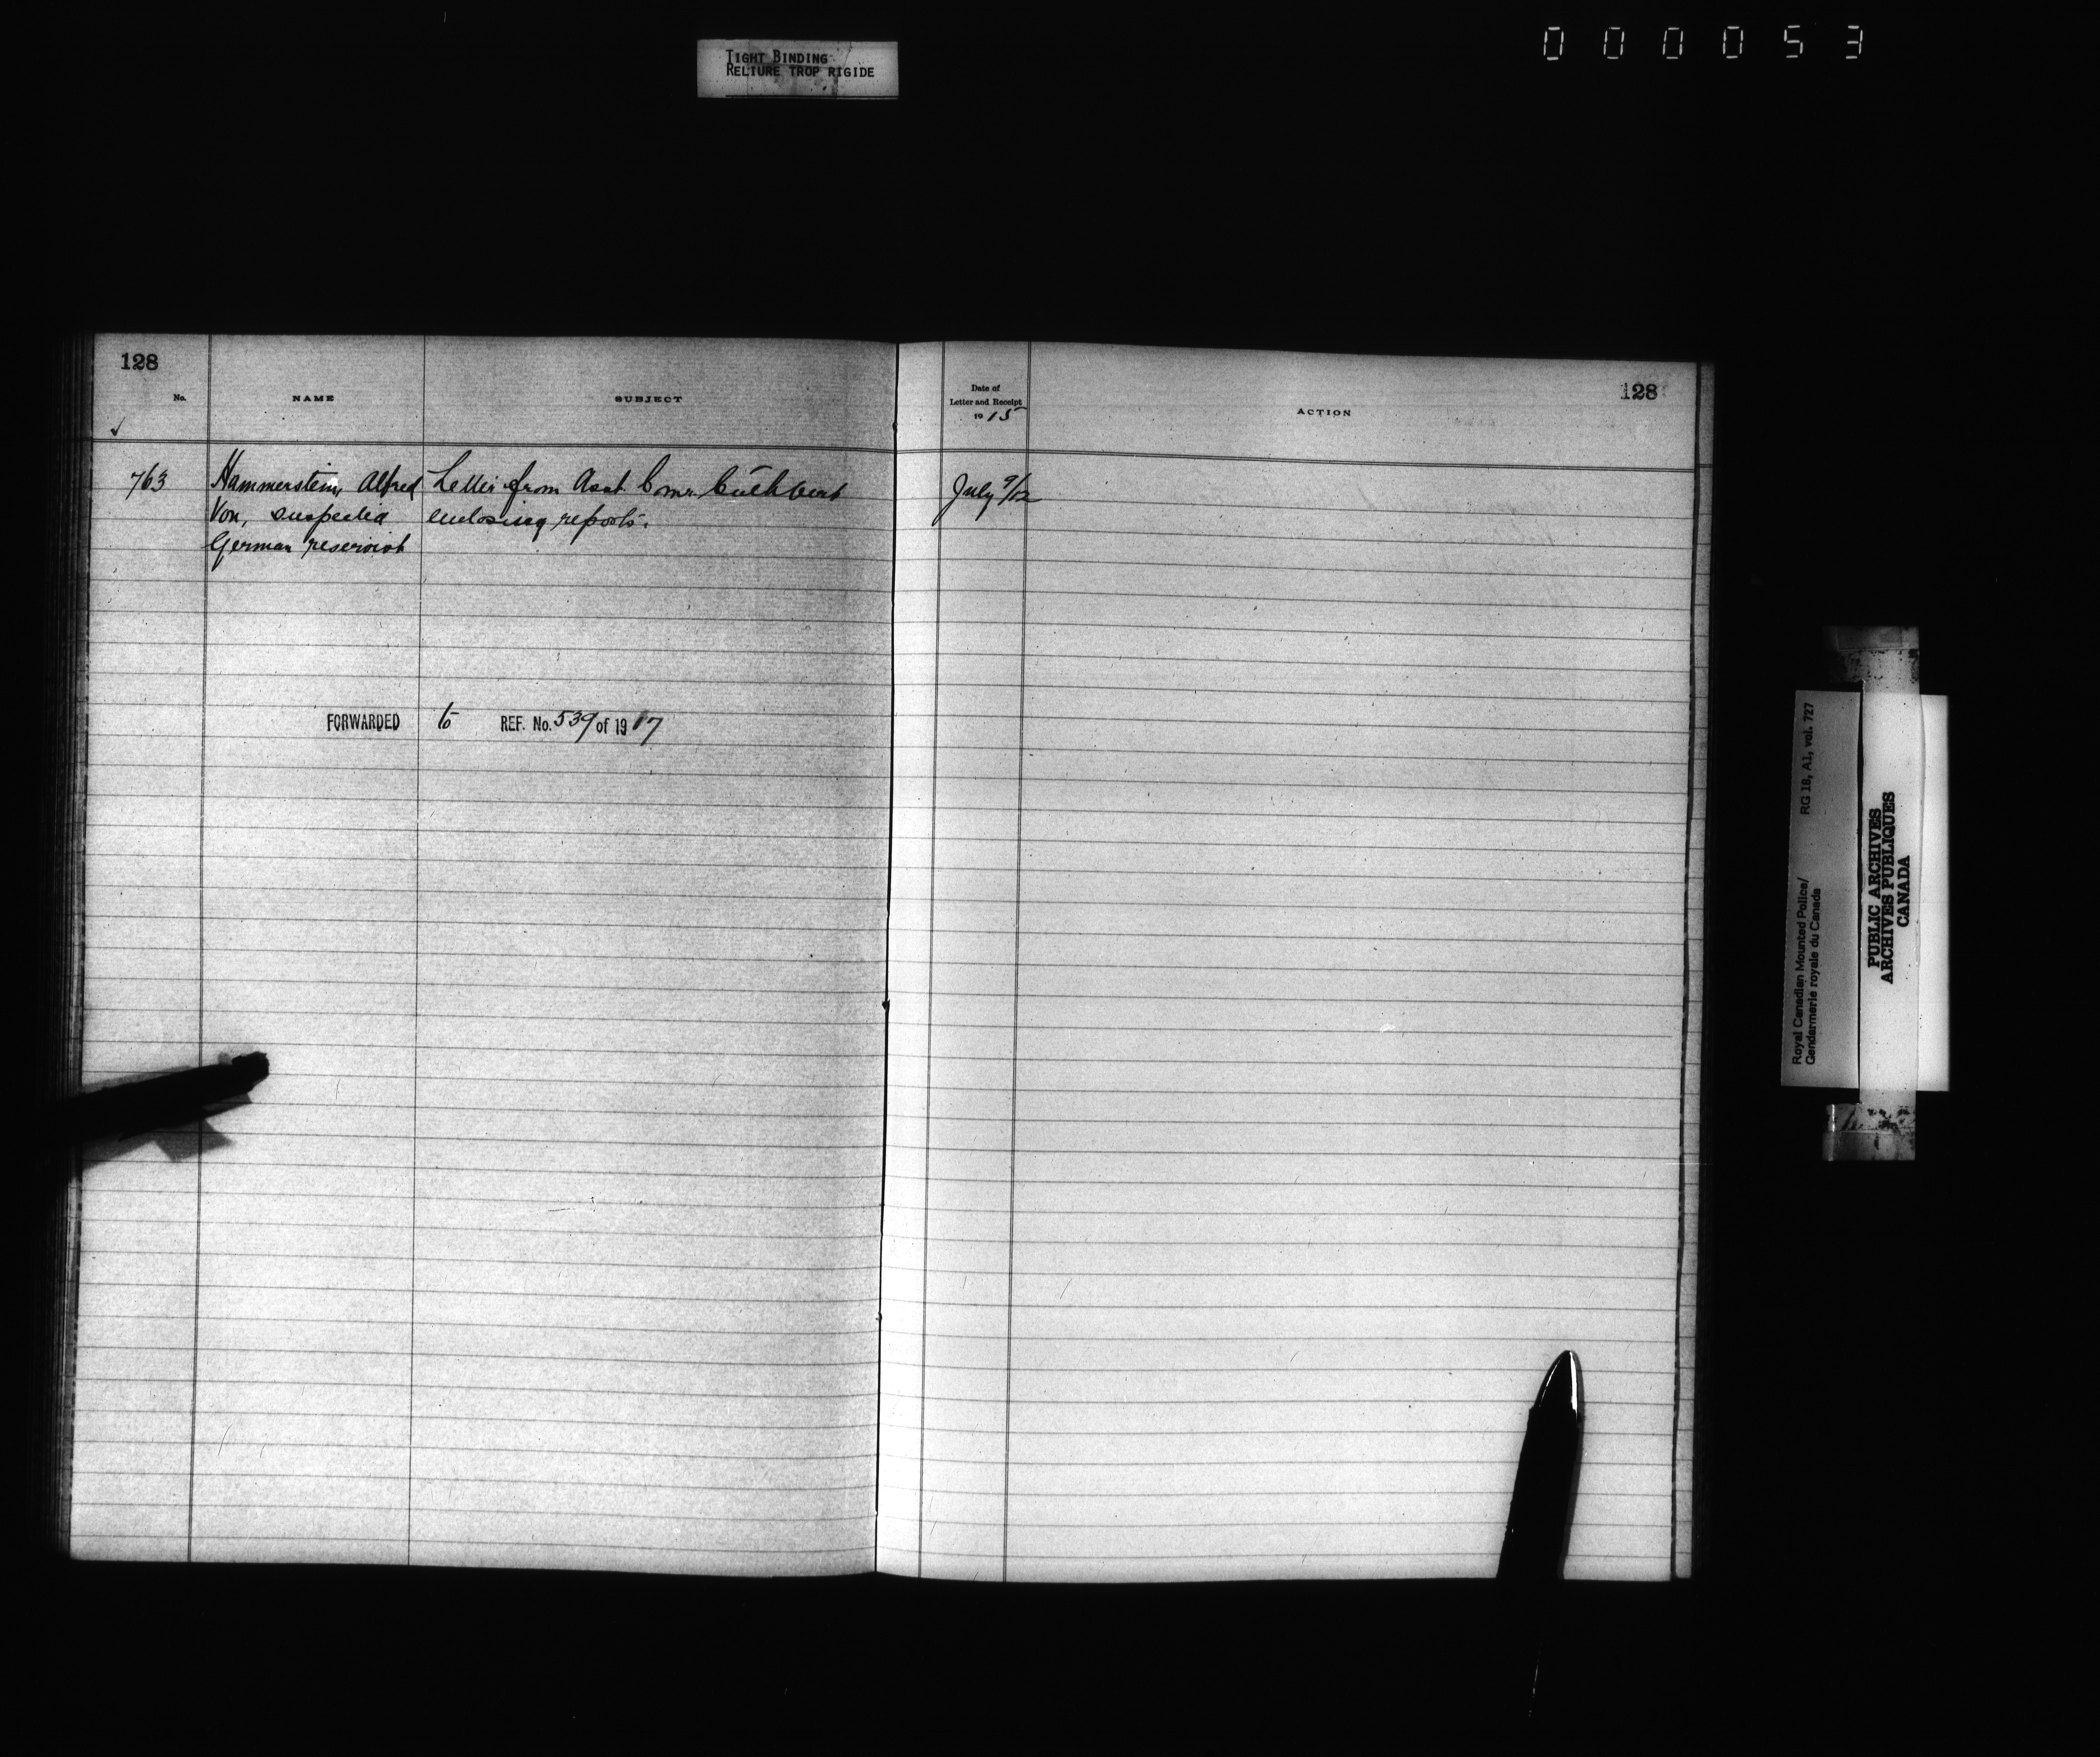 TIGHT BINDING
RELIURE TROP RIGIDE
000053
128
No.
NAME
SUBJECT
Date of
Letter and Receipt
1915
ACTION
128
763 Hammerstein, Alfred Letter from Asst. Comr. Cuthbert July 9/12
Von, suspected enclosing reports.
German reservist
FORWARDED to REF. No. 539 of 1917
Royal Canadian Mounted Police/ RG 18, A1, vol. 727
Gendarmerie royale du Canada
PUBLIC ARCHIVES
ARCHIVES PUBLIQUES
CANADA